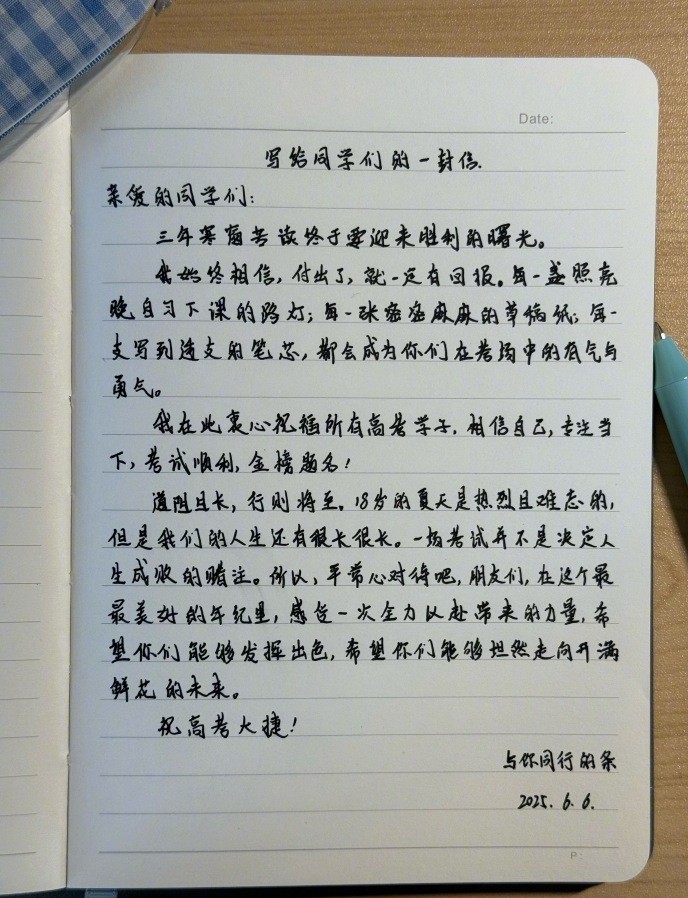 Date:
写给同学们的一封信.
亲爱的同学们:
三年寒窗苦读终于要迎来胜利的曙光。
我始终相信,付出了,就一定有回报。每一盏照亮
晚自习下课的路灯;每一张密密麻麻的草稿纸;每一
支写到透支的笔芯,都会成为你们在考场中的底气与
勇气。
我在此衷心祝福所有高考学子,相信自己,专注当
下,考试顺利,金榜题名!
道阻且长,行则将至。18岁的夏天是热烈且难忘的,
但是我们的人生还有很长很长。一场考试并不是决定人
生成败的赌注。所以,平常心对待吧,朋友们,在这个最
最美好的年纪里,感受一次全力以赴带来的力量,希
望你们能够发挥出色,希望你们能够坦然走向开满
鲜花的未来。
祝高考大捷!
与你同行的条
2025.6.6.
P: